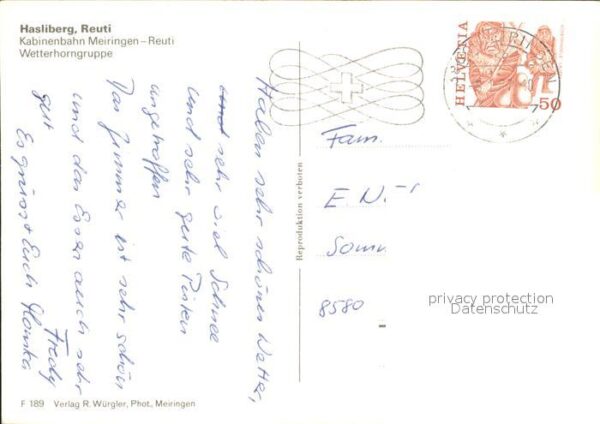 Hasliberg, Reuti
Kabinenbahn Meiringen–Reuti
Wetterhorngruppe
Haben sehr schönes Wetter,
sehr viel Schnee
und sehr gute Pisten
angetroffen
Das Zimmer ist sehr schön
und das Essen auch sehr
gut
Es grüsst Euch
Fredy
HELVETIA
50
MEIRINGEN
Reproduktion verboten
Fam.
E. N.
Sonn
8580
privacy protection
Datenschutz
F 189 Verlag R. Würgler, Phot., Meiringen